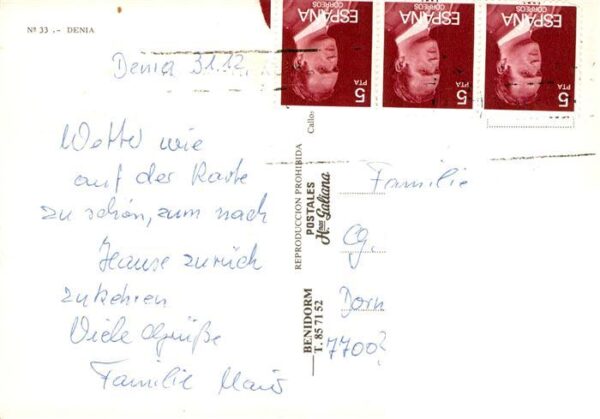 Nº 33 .- DENIA
Denia 31.12.
Wetter wie
auf der Karte
zu schön, zum nach
Hause zurück
zukehren
Viele Grüße
Familie
ESPAÑA
CORREOS
5
PTA
ESPAÑA
CORREOS
5
PTA
ESPAÑA
CORREOS
5
PTA
REPRODUCCION PROHIBIDA
POSTALES
Hnos Galiana
BENIDORM
T. 85 71 52
Familie
Cg.
Dorn
7700